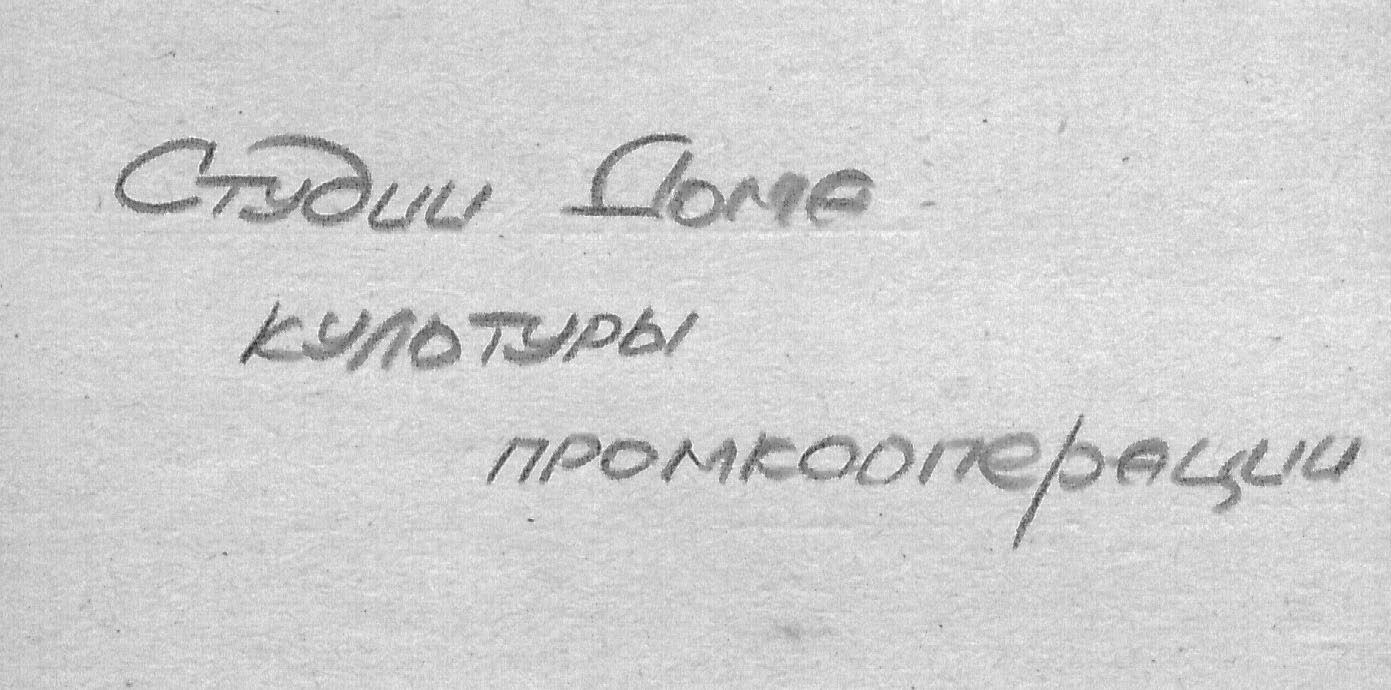 Студии Дома
культуры
промкооперации